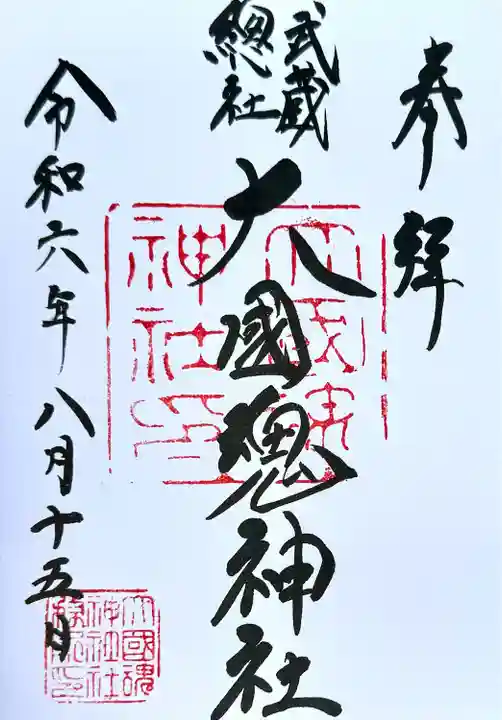 奉拝
武蔵
總社
大國魂神社
大國魂
神社印
令和六年八月十五日
大國魂
神社社